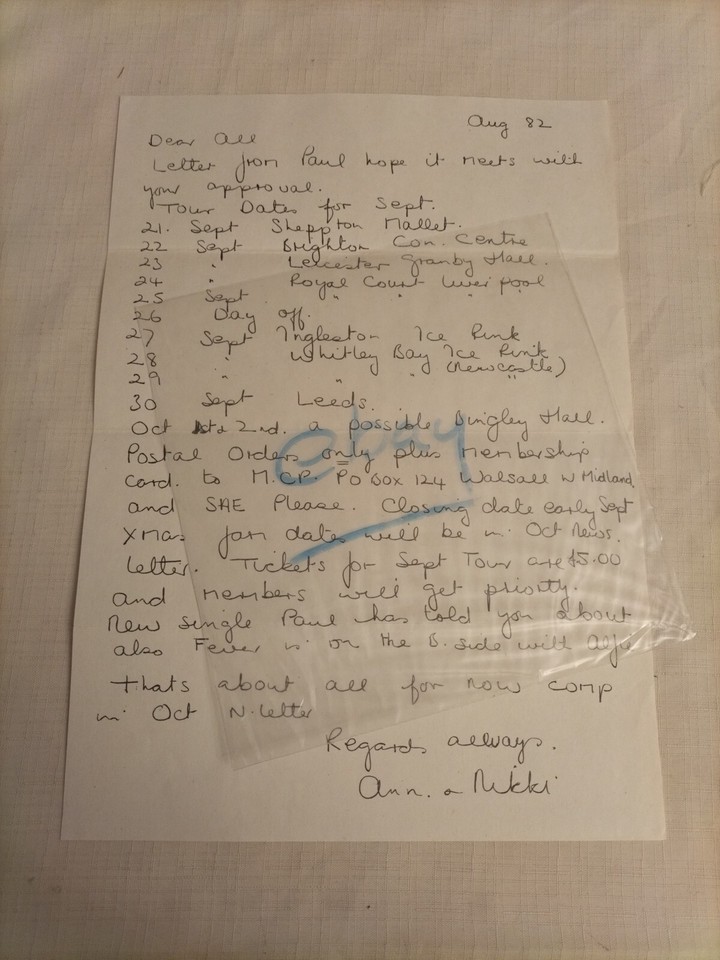 Aug 82
Dear All
Letter from Paul hope it meets with
your approval.
Tour Dates for Sept.
21. Sept Sheppton Mallet.
22 Sept Brighton Con. Centre
23 " Leicester Granby Hall.
24 " Royal Court Liverpool
25 Sept " " "
26 Day off.
27 Sept Ingleston Ice Rink
28 " Whitley Bay Ice Rink
29 " " " (Newcastle)
30 Sept Leeds.
Oct 1st & 2nd. a possible Bingley Hall.
Postal Orders only plus membership
card. to M.C.P. PO Box 124 Walsall W Midland.
and SAE Please. Closing date early Sept
Xmas jam dates will be in Oct News.
letter. Tickets for Sept Tour are £5.00
and members will get priority.
New single Paul has told you about
also Fever is on the B. side with Alfie
Thats about all for now comp
in Oct N. letter
Regards always.
Ann. & Nikki
ebay